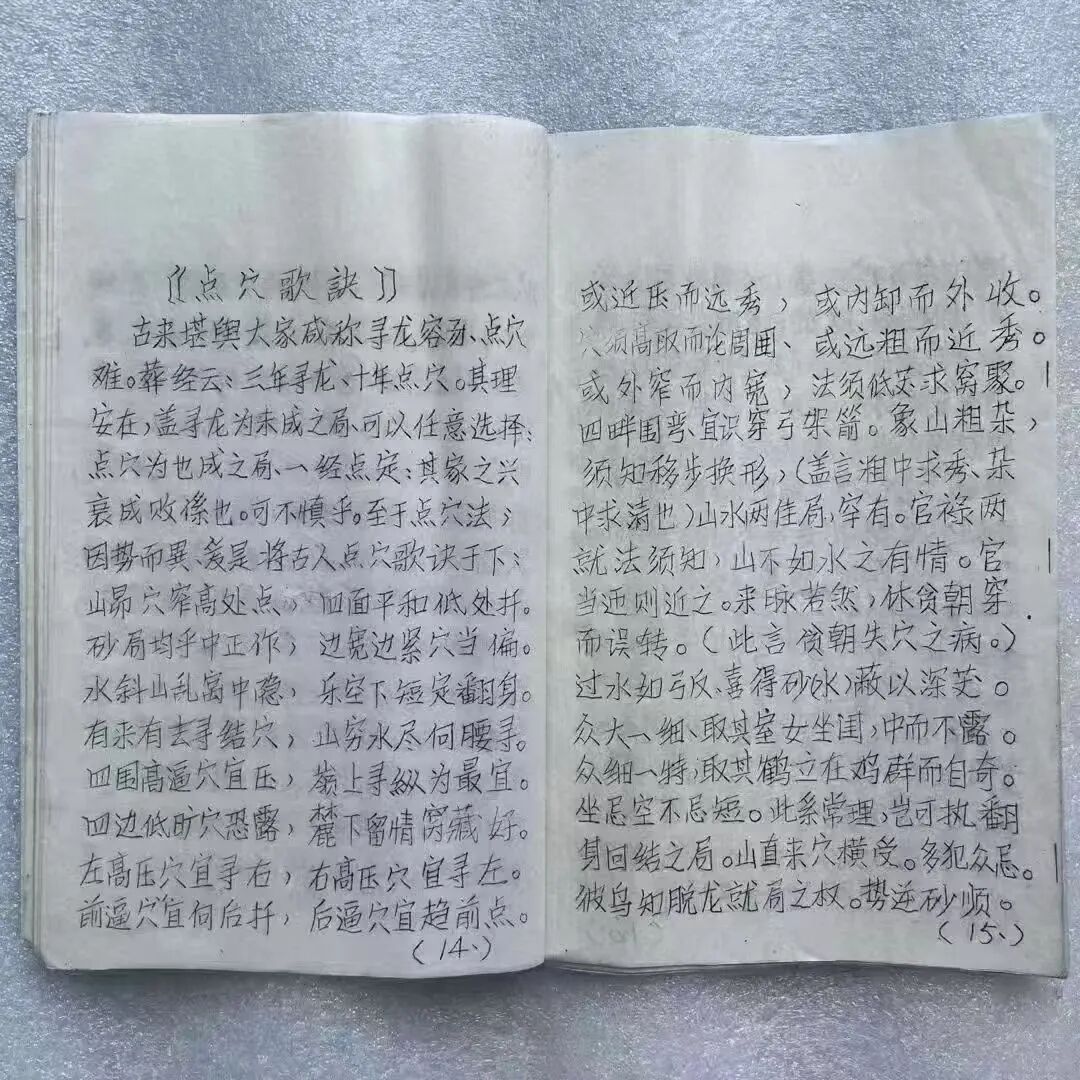 〖点穴歌訣〗
古来堪舆大家咸称寻龙容易、点穴
难。葬经云：三年寻龙、十年点穴。其理
安在，盖寻龙为未成之局、可以任意选择；
点穴为也成之局、一经点定；其家之兴
衰成败係也。可不慎乎。至于点穴法；
因势而異、爰是将古人点穴歌诀于下：
山昂穴窄高处点，四面平和低处扦。
砂局均手中正作；边宽边紧穴当偏。
水斜山乱窩中隐，乐空下短定翻身。
有来有去寻结穴；山穷水尽向腰寻。
四围高逼穴宜压；嶺上寻縱为最宜。
四边低旷穴恐露，麓下留情窝藏好。
左高压穴宜寻右；右高压穴宜寻左。
前逼穴宜向后扦，后逼穴宜趋前点。
（14、）
或近压而远秀，或内卸而外收。
只须高取而论周围、或远粗而近秀。
或外窄而内宽；法须低芟求窩聚。
四畔围弯、宜识穿弓架箭。象山粗杂，
须知移步换形，（盖言粗中求秀、杂
中求清也）山水两佳局，罕有。官禄两
就法须知，山不如水之有情。官
当迊则近之。来脉若然，休贪朝穿
而误转。（此言贪朝失穴之病。）
过水如弓反、喜得砂（水）蔽以深芟。
众大一细、取其室女坐闺，中而不露。
众细一特，取其鹤立在鸡群而自奇。
坐忌空不忌短。此系常理，岂可执翻
身回结之局。山直来穴横受。多犯众忌。
彼鸟知脱龙就局之权。势逆砂顺。
（15、）